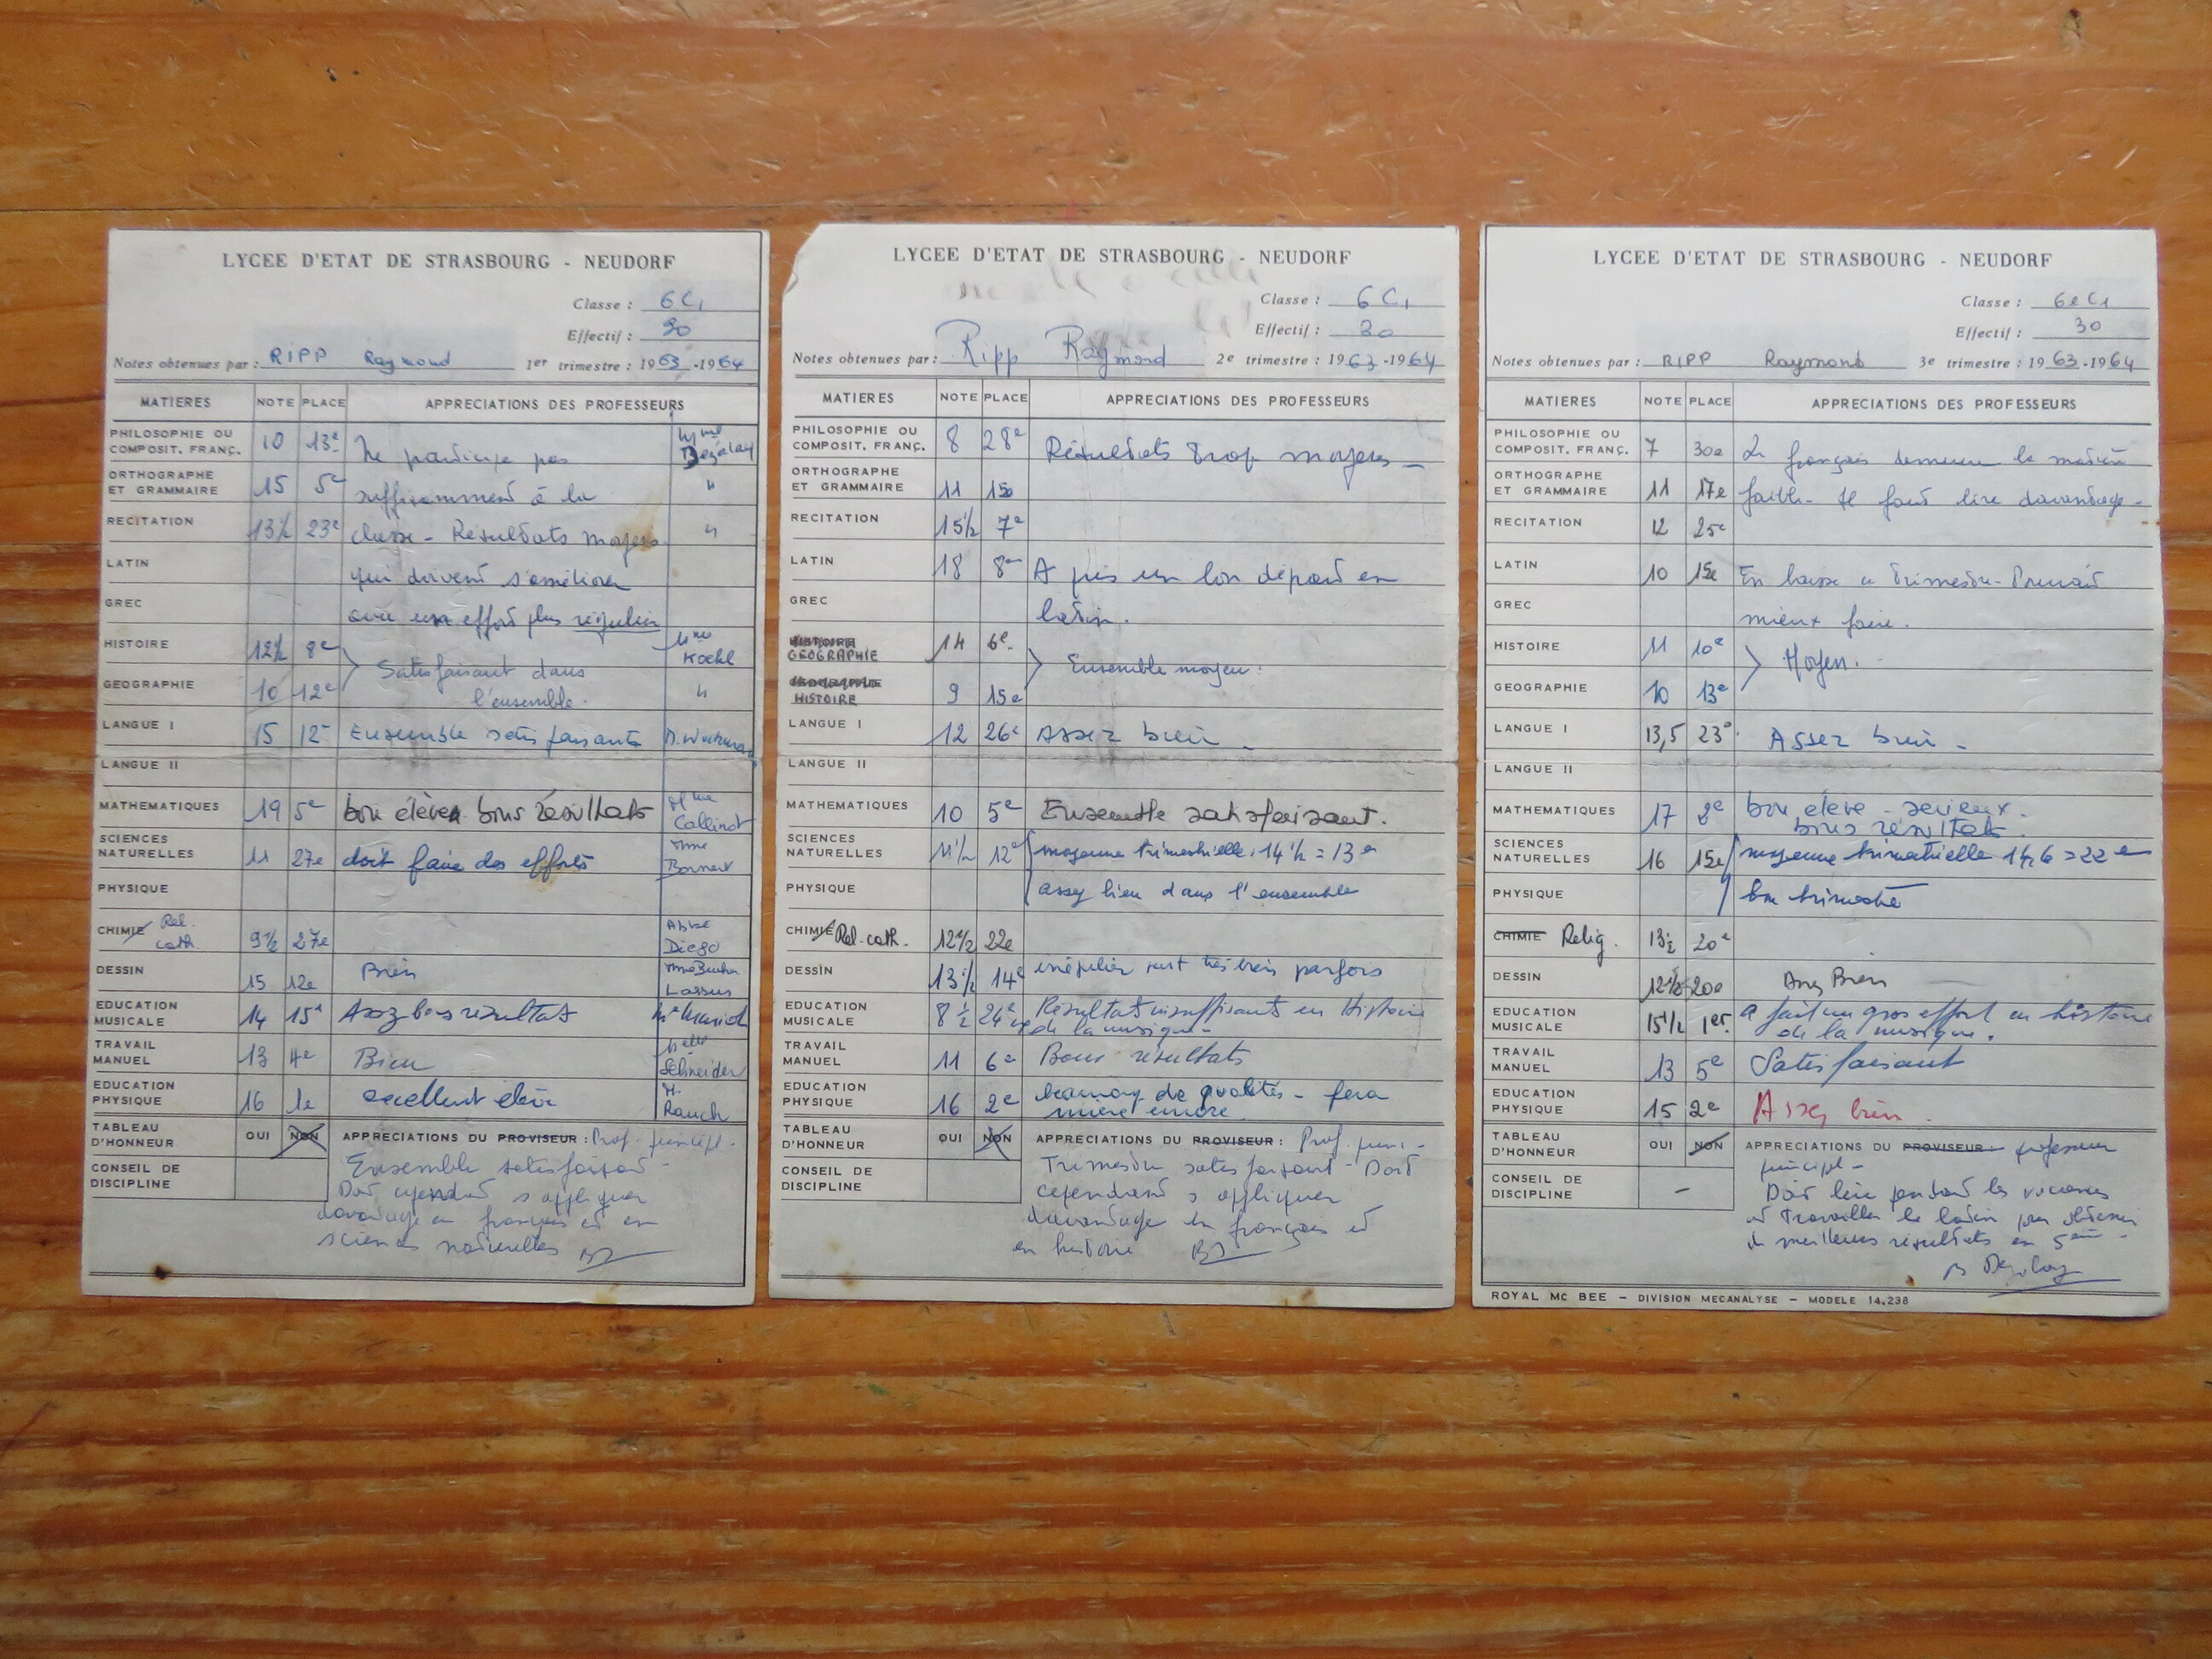 LYCEE D'ETAT DE STRASBOURG - NEUDORF
Classe : 6 C1
Effectif : 30
Notes obtenues par : RIPP Raymond 1er trimestre : 1963-1964
MATIERES NOTE PLACE APPRECIATIONS DES PROFESSEURS
PHILOSOPHIE OU COMPOSIT. FRANÇ. 10 13e Ne participe pas Mme Dezalay
ORTHOGRAPHE ET GRAMMAIRE 15 5e suffisamment à la "
RECITATION 13½ 23e classe - Résultats moyens "
LATIN qui doivent s'améliorer
GREC avec un effort plus régulier
HISTOIRE 12½ 8e Satisfaisant dans Mme Koehl
GEOGRAPHIE 10 12e l'ensemble. "
LANGUE I 15 12e Ensemble satisfaisant
LANGUE II
MATHEMATIQUES 19 5e bon élève bons résultats Mme Callinot
SCIENCES NATURELLES 11 27e doit faire des efforts Mme Bornert
PHYSIQUE
CHIMIE Rel. cath. 9½ 27e Abbé Diego
DESSIN 15 12e Bien Lassus
EDUCATION MUSICALE 14 15e Assez bons résultats
TRAVAIL MANUEL 13 4e Bien Melle Schneider
EDUCATION PHYSIQUE 16 1e excellent élève M. Rauch
TABLEAU D'HONNEUR OUI NON APPRECIATIONS DU PROVISEUR : Prof. princip. -
CONSEIL DE DISCIPLINE
Ensemble satisfaisant -
Doit cependant s'appliquer
davantage en français et en
sciences naturelles
LYCEE D'ETAT DE STRASBOURG - NEUDORF
Classe : 6 C1
Effectif : 30
Notes obtenues par : Ripp Raymond 2e trimestre : 1963-1964
MATIERES NOTE PLACE APPRECIATIONS DES PROFESSEURS
PHILOSOPHIE OU COMPOSIT. FRANÇ. 8 28e Résultats trop moyens -
ORTHOGRAPHE ET GRAMMAIRE 11 15e
RECITATION 15½ 7e
LATIN 18 8e A pris un bon départ en
GREC latin.
HISTOIRE GEOGRAPHIE 14 6e Ensemble moyen.
GEOGRAPHIE HISTOIRE 9 15e
LANGUE I 12 26e Assez bien -
LANGUE II
MATHEMATIQUES 10 5e Ensemble satisfaisant.
SCIENCES NATURELLES 11½ 12e moyenne trimestrielle : 14½ = 13e
PHYSIQUE assez bien dans l'ensemble
CHIMIE Rel. cath. 12½ 22e
DESSIN 13½ 14e irrégulier mais très bien parfois
EDUCATION MUSICALE 8½ 24e Résultats insuffisants en Histoire
de la musique -
TRAVAIL MANUEL 11 6e Bons résultats
EDUCATION PHYSIQUE 16 2e beaucoup de qualités - fera
mieux encore
TABLEAU D'HONNEUR OUI NON APPRECIATIONS DU PROVISEUR : Prof. princ. -
CONSEIL DE DISCIPLINE
Trimestre satisfaisant - Doit
cependant s'appliquer
davantage en français et
en histoire
LYCEE D'ETAT DE STRASBOURG - NEUDORF
Classe : 6e C1
Effectif : 30
Notes obtenues par : RIPP Raymond 3e trimestre : 1963-1964
MATIERES NOTE PLACE APPRECIATIONS DES PROFESSEURS
PHILOSOPHIE OU COMPOSIT. FRANÇ. 7 30e Le français demeure la matière
ORTHOGRAPHE ET GRAMMAIRE 11 17e faible - Il faut lire davantage -
RECITATION 12 25e
LATIN 10 15e En baisse ce trimestre - Pourrait
GREC mieux faire.
HISTOIRE 11 10e Moyen.
GEOGRAPHIE 10 13e
LANGUE I 13,5 23e Assez bien -
LANGUE II
MATHEMATIQUES 17 2e bon élève - sérieux -
bons résultats.
SCIENCES NATURELLES 16 15e moyenne trimestrielle 14,6 = 22e
PHYSIQUE bon trimestre
CHIMIE Relig. 13½ 20e
DESSIN 12½ 20e Assez Bien
EDUCATION MUSICALE 15½ 1er a fait un gros effort en histoire
de la musique.
TRAVAIL MANUEL 13 5e Satisfaisant
EDUCATION PHYSIQUE 15 2e Assez bien.
TABLEAU D'HONNEUR OUI NON APPRECIATIONS DU PROVISEUR : professeur
principal -
CONSEIL DE DISCIPLINE -
Doit lire pendant les vacances
et travailler le latin pour obtenir
de meilleurs résultats en 5ème -
Dezalay
ROYAL MC BEE - DIVISION MECANALYSE - MODELE 14,238